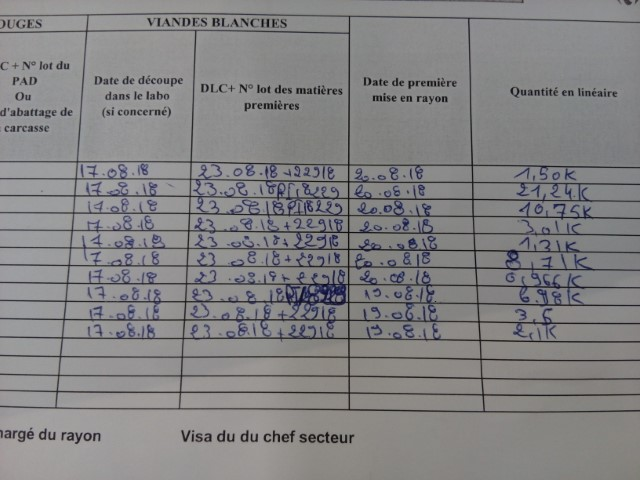 OUGES VIANDES BLANCHES
C + N° lot du
PAD
Ou
d'abattage de
carcasse
Date de découpe
dans le labo
(si concerné)
DLC+ N° lot des matières
premières
Date de première
mise en rayon
Quantité en linéaire
17.08.18 23.08.18+22918 20.08.18 1,50K
17.08.18 23.08.18 PI18229 20.08.18 21,24K
17.08.18 23.08.18 PI18229 20.08.18 10,75K
17.08.18 23.08.18+22918 20.08.18 3,01K
17.08.18 23.08.18+22918 20.08.18 1,31K
17.08.18 23.08.18+22918 20.08.18 8,71K
17.08.18 23.08.18+22918 20.08.18 0,966K
17.08.18 23.08.18 19.08.18 6.98K
17.08.18 23.08.18+22918 19.08.18 3,6
17.08.18 23.08.18+22918 19.08.18 2,1K
hargé du rayon Visa du du chef secteur